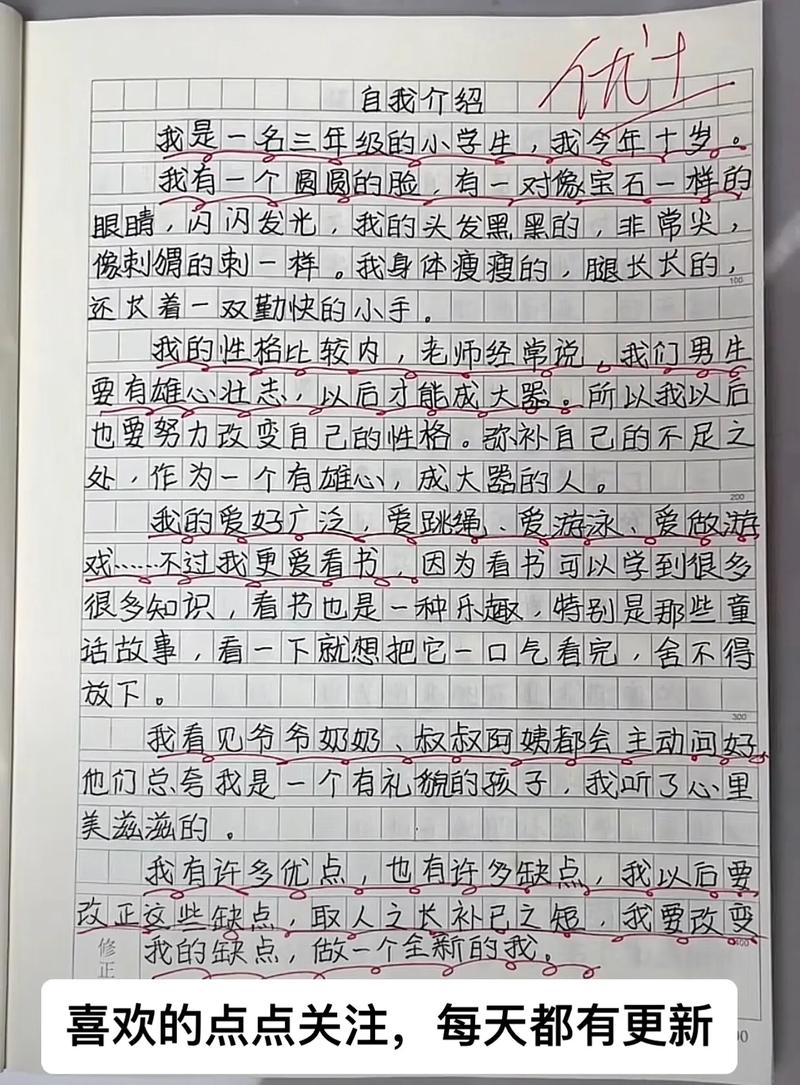 优+
自我介绍
我是一名三年级的小学生，我今年十岁。
我有一个圆圆的脸，有一对像宝石一样的
眼睛，闪闪发光，我的头发黑黑的，非常尖，
像刺猬的刺一样。我身体瘦瘦的，腿长长的，
100
还长着一双勤快的小手。
我的性格比较内，老师经常说，我们男生
要有雄心壮志，以后才能成大器。所以我以后
也要努力改变自己的性格。弥补自己的不足之
处，作为一个有雄心，成大器的人。
200
我的爱好广泛，爱跳绳、爱游泳、爱做游
戏……不过我更爱看书，因为看书可以学到很多
很多知识，看书也是一种乐趣，特别是那些童
话故事，看一下就想把它一口气看完，舍不得
放下。
300
我看见爷爷奶奶、叔叔阿姨都会主动问好，
他们总夸我是一个有礼貌的孩子，我听了心里
美滋滋的。
我有许多优点，也有许多缺点，我以后要
改正这些缺点，取人之长补己之短，我要改变
400
修正
我的缺点，做一个全新的我。
喜欢的点点关注，每天都有更新